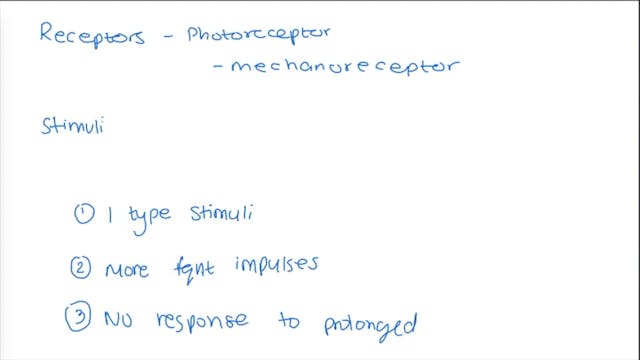 Receptors - Photoreceptor
- mechanoreceptor
Stimuli
① 1 type stimuli
② More fqnt impulses
③ No response to prolonged